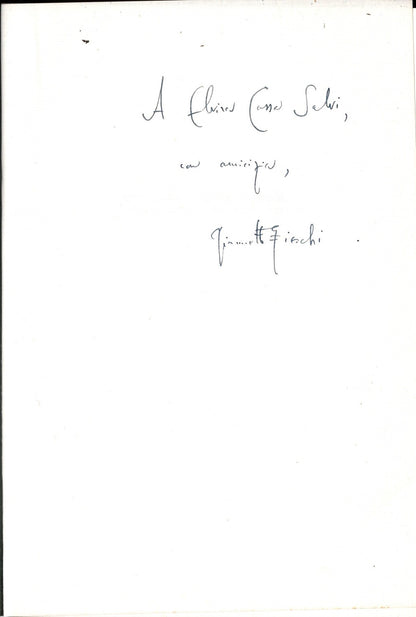 A Elvira Cassa Salvi,
con amicizia,
Giannetto Fieschi